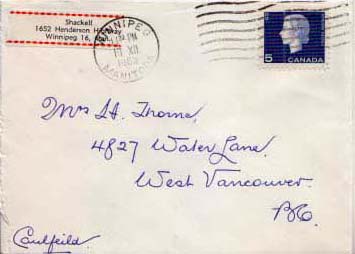 Shackell
1652 Henderson Highway
Winnipeg 16, Man.
WINNIPEG
PM
XII
MANITOBA
5 CANADA
Mrs H. Thorne,
4827 Water Lane.
West Vancouver.
B.C.
Caulfeild